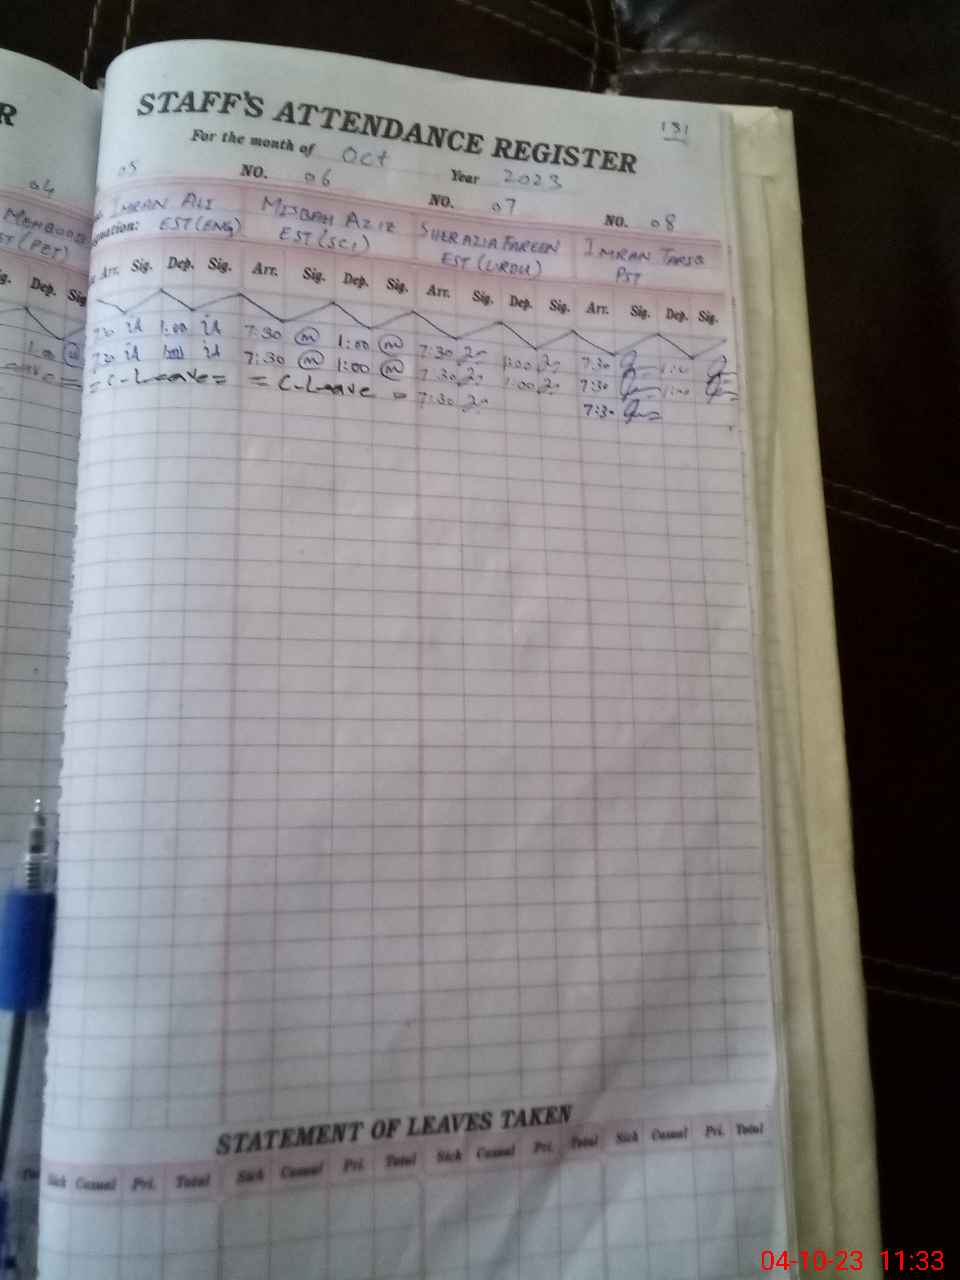 R
STAFF'S ATTENDANCE REGISTER
131
For the month of Oct Year 2023
04 05 NO. 06 NO. 07 NO. 08
MEHBOOB IMRAN ALI MISBAH AZIZ SHERAZIA FAREEN IMRAN TARIQ
ST (PET) gnation: EST (ENG) EST (SCI) EST (URDU) PST
g. Dep. Sig Arr. Sig. Dep. Sig. Arr. Sig. Dep. Sig. Arr. Sig. Dep. Sig. Arr. Sig. Dep. Sig.
7:30 1:00 7:30 m 1:00 m 7:30 1:00 7:30 1:00
1:00 7:30 1:00 7:30 m 1:00 m 7:30 1:00 7:30 1:00
= C-Leave = = C-Leave = 7:30 7:30
STATEMENT OF LEAVES TAKEN
Sick Casual Pri. Total Sick Casual Pri. Total Sick Casual Pri. Total Sick Casual Pri. Total
04-10-23 11:33